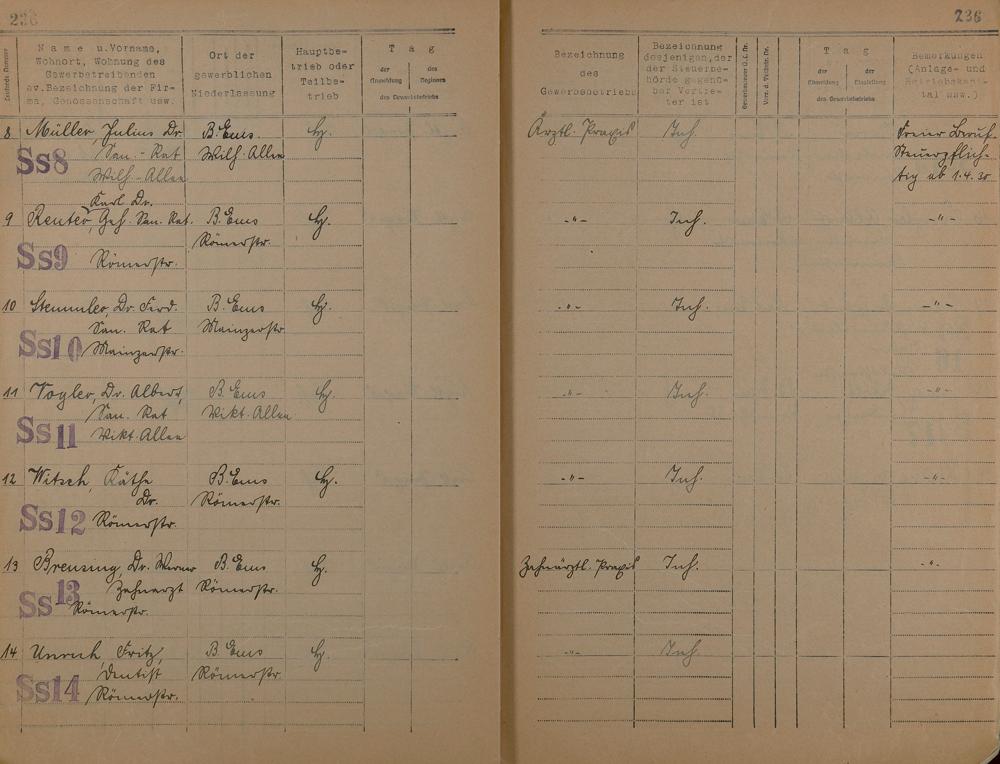 236
236
Laufende Nummer
Name u.Vorname,
Wohnort, Wohnung des
Gewerbetreibenden
ev.Bezeichnung der Fir-
ma, Genossenschaft usw.
Ort der
gewerblichen
Niederlassung
Hauptbe-
trieb oder
Teilbe-
trieb
Tag
der
Anmeldung
des
Beginnes
des Gewerbebetriebs
Bezeichnung
des
Gewerbebetriebs
Bezeichnung
desjenigen, der
der Steuerbe-
hörde gegenü-
ber Vertre-
ter ist
Tag
der
Abmeldung
der
Einstellung
des Gewerbebetriebs
Bemerkungen
(Anlage- und
Betriebskapi-
tal usw.)
8 Müller, Julius Dr. B. Ems. H. Ärztl. Praxis Inh. Freier Beruf
Ss8 San.-Rat Wilh-Allee Steuerpflich-
Wilh-Allee tig ab 1.4.30
Karl Dr.
9 Reuter, Geh. San. Rat. B. Ems H. -"- Inh. -"-
Römerstr.
Ss9 Römerstr.
10 Stemmler, Dr. Ferd. B. Ems H. -"- Inh. -"-
San. Rat Mainzerstr.
Ss10 Mainzerstr.
11 Vogler, Dr. Albert, B. Ems H. -"- Inh. -"-
San. Rat Wikt. Allee
Ss11 Wikt. Allee
12 Witsch, Käthe B. Ems H. -"- Inh. -"-
Dr. Römerstr.
Ss12 Römerstr.
13 Breusing, Dr. Werner B. Ems H. Zahnärztl. Praxis Inh. -"-
Zahnarzt Römerstr.
Ss13 Römerstr.
14 Unruh, Fritz, B. Ems H. -"- Inh.
Dentist Römerstr.
Ss14 Römerstr.